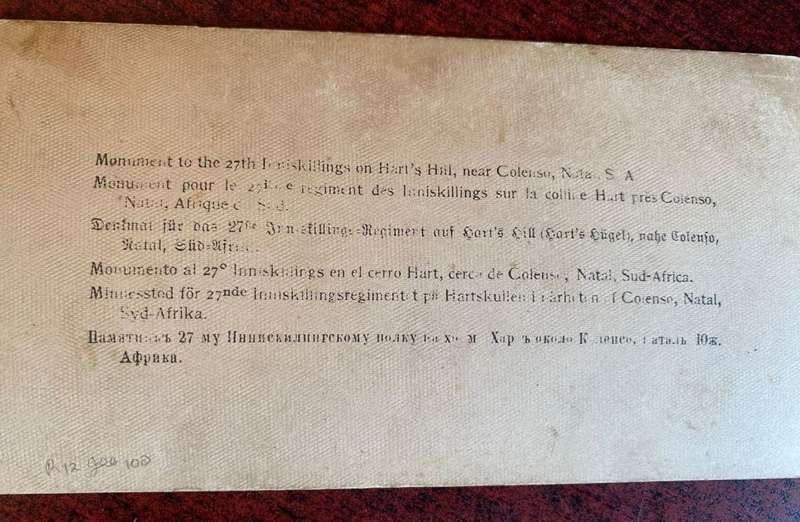 Monument to the 27th Inniskillings on Hart's Hill, near Colenso, Natal, S. A.
Monument pour le regiment des Inniskillings sur la colline Hart près Colenso,
Natal, Afrique
Denkmal für das 27ste Inniskillings-Regiment auf Hart's Hill (Hart's Hügel), nahe Colenso,
Natal, Süd-Afrika.
Monumento al 27º Inniskillings en el cerro Hart, cerca de Colenso, Natal, Sud-Africa.
Minnesstod för 27nde Inniskillingsregimentet på Hartskullen i närheten af Colenso, Natal,
Syd-Afrika.
Памятникъ 27-му Иннискилингскому полку на около Натал Юж.
Африка.